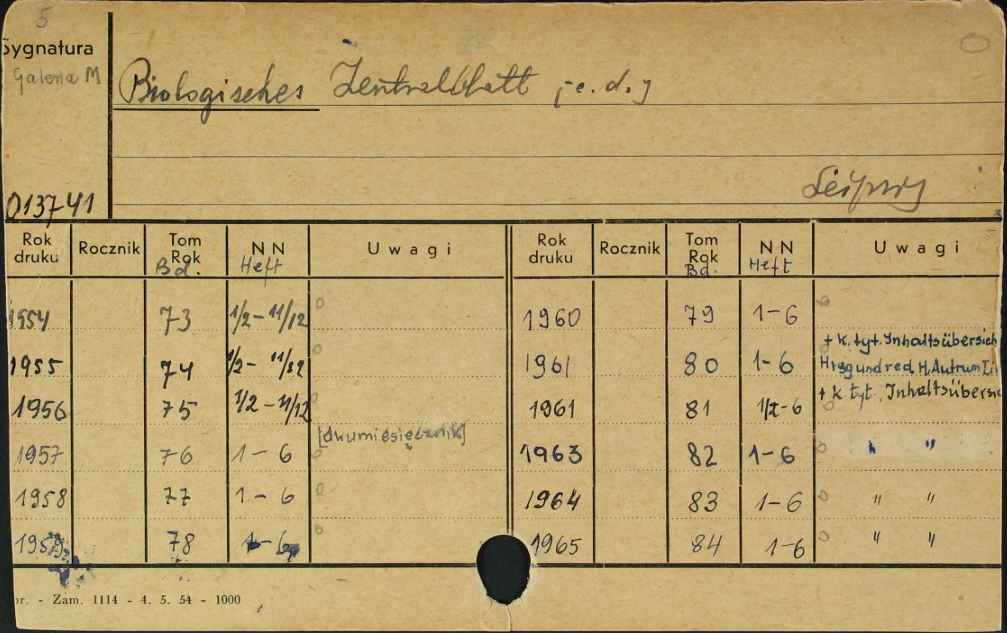 5
Sygnatura
Galeria M
Biologisches Zentralblatt
Leipzig
013741
Rok druku Rocznik Tom Rok Bd. N N Heft Uwagi Rok druku Rocznik Tom Rok Bd. N N Heft Uwagi
1954 73 1/2-11/12 1960 79 1-6
+ k. tyt. Inhaltsübersich
1955 74 1/2-11/12 1961 80 1-6 Hrsg und red. H. Autrum
+ k. tyt. Inhaltsübersic
1956 75 1/2-11/12 1961 81 1/2-6
[dwumiesięcznik]
1957 76 1-6 1963 82 1-6 " "
1958 77 1-6 1964 83 1-6 " "
1959 78 1-6 1965 84 1-6 " "
r. - Zam. 1114 - 4. 5. 54 - 1000